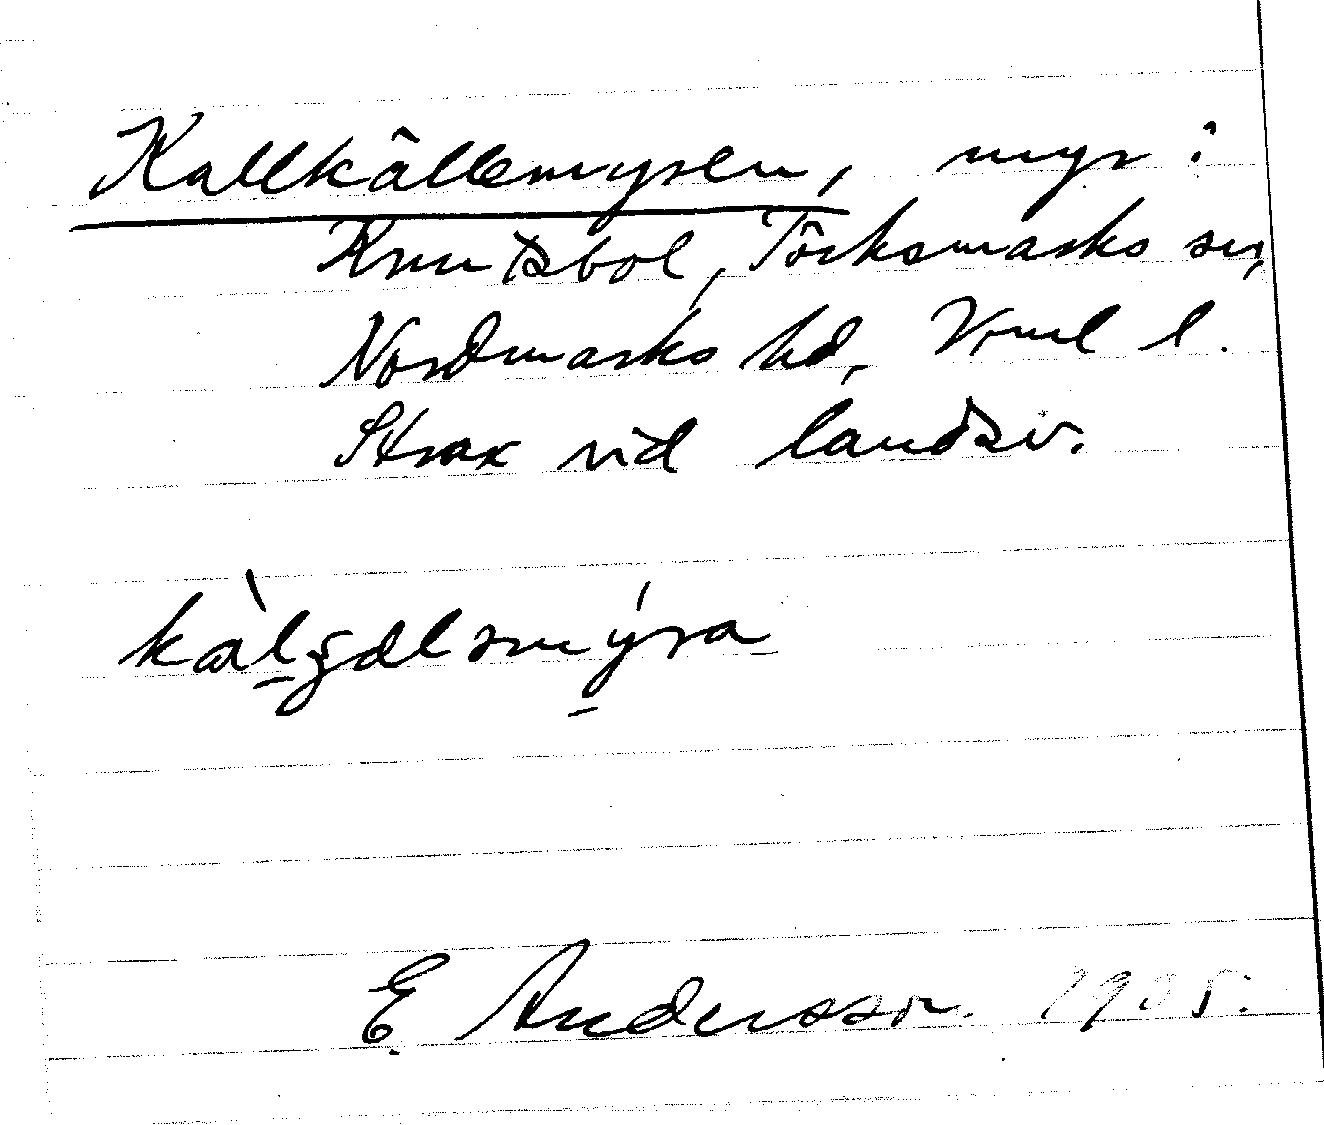 Kallkällemyren, myr i
Knutsbol, Töcksmarks sn,
Nordmarks hd, Vrml l.
Strax vid landsv.
kàlʒəlsmýra
E. Andersson. 1905.